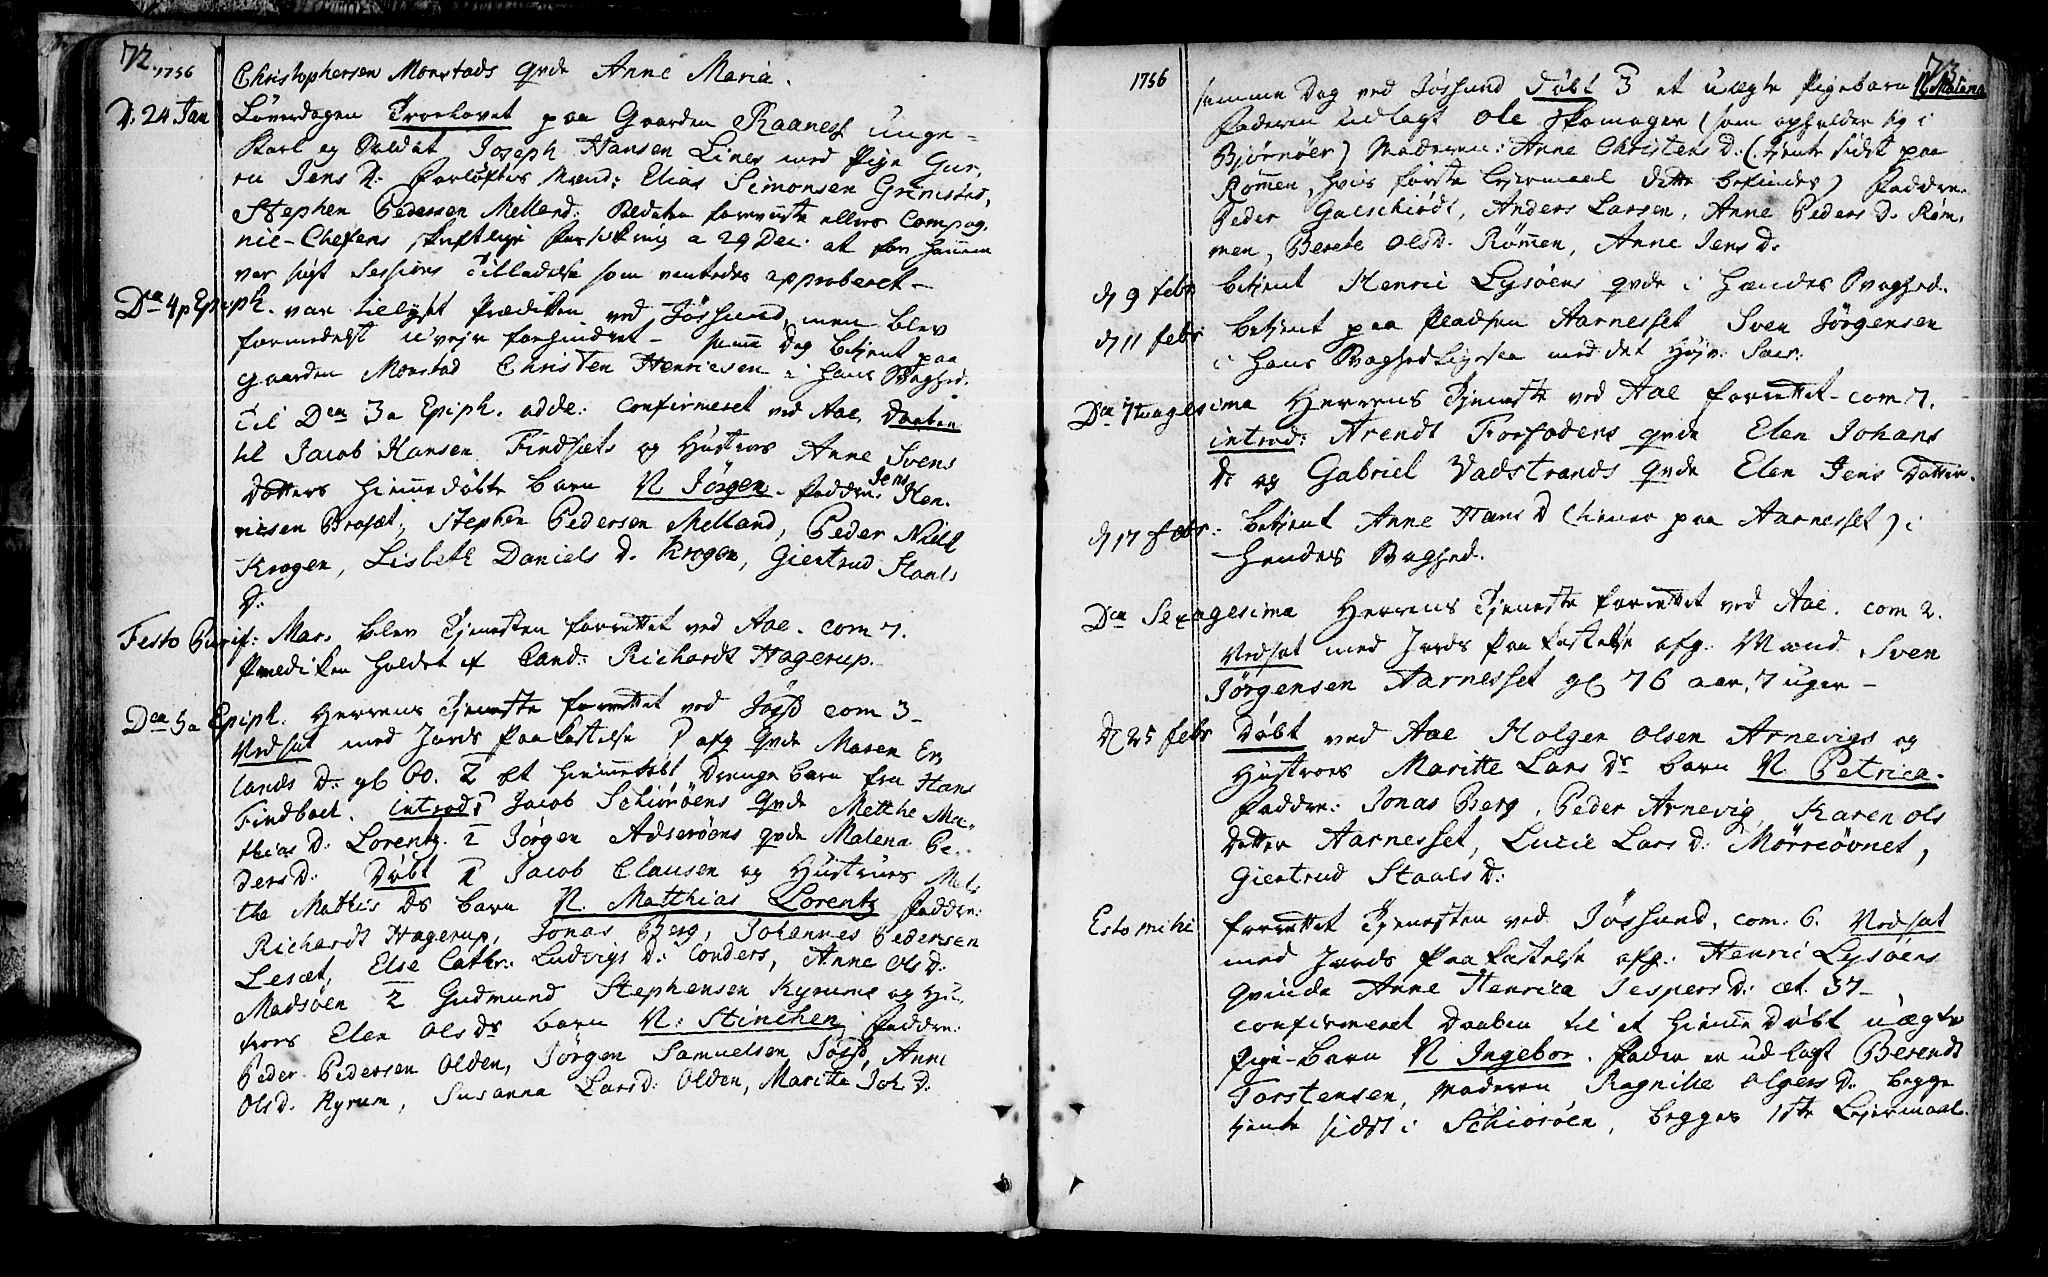 72.
1756
Christophersen Monstads qvde Anne Maria.
D. 24 Jan Löverdagen Troelovet paa Gaarden Raanes unge-
Karl og Soldat Joseph Hansen Lines med Pige Gu-
ru Jens D: Forløftes Mænd: Elias Simonsen Grinstad,
Stephen Pedersen Melland. foreviiste ellers Compag-
nie-Chefens skriftlige a 29 Dec. at for hannem
var sögt Sessions Tilladelse som ventedes approberet-
Dca 4 p Epiph. var tillyst Prædiken ved Jössund, men blev
formedelst u-vejr forhindret- samme Dag betjent paa
gaarden Monstad Christen Henricsen i hans Svaghed.
Til Dca 3a Epiph. adde: confirmeret ved Aae, Daaben
til Jacob Hansen Findsæts og Hustrues Anne Svens
Dotters hiemmedöbte barn N Jörgen. Faddre: Jens Hen-
ricsen Brasæt, Stephen Pedersen Melland, Peder Niels
Krogen, Lisbeth Daniels D. Krogen, Giertrud Staals
D:
Festo Purif: Mar. blev Tjenesten forrettet ved Aae. com 7.
Prædiken holdet af Cand: Richardt Hagerup.
Dca 5a Epiph. Herrens Tjeneste forrettet ved Jössd com 3-
Vedsat med Jords Paakastelse 1 afg qvde Maren Er-
lands D: gl 60. 2 et hiemmedöbt Drenge barn fra Hans
Findboet. introd: 1 Jacob Schiöröens qvde Metthe Ma-
thias D: Lorentz. 2 Jörgen Adseröens qvde Malena Pe-
ders D: Döbt 1 Jacob Clausen og Hustrues Met-
the Mathis Ds barn N. Matthias Lorentz Faddre:
Richardt Hagerup, Jonas Berg, Johannes Pedersen
Lesæt, Else Cathr: Ludvigs D: Conders, Anne Ols D:
Madsöen 2 Gudmund Stephensen Kyrums og Hu-
trues Elen Ols Ds barn N: Stinchen, Faddre:
Peder Pedersen Olden, Jörgen Samuelsen Jössd, Anne
Ols D. Kyrum, Susanna Lars D: Olden, Maritte Joh D.
73.
1756
samme Dag ved Jössund Döbt 3 et uægte Pigebarn N. Malena
Faderen udlagt Ole Skomager (som opholder sig i
Björnöer) Moderen: Anne Christens D: (tjente sidst paa
Römmen, hvis förste Lejermaal dette befindes) Faddre.
Peder Galschiödt, Anders Larsen, Anne Peders D. Röm-
men, Berete Ols D. Römmen, Anne Jens D.
d 9 febr betjent Henric Lysöens qvde i hendes Svaghed.
d 11 febr betjent paa Pladsen Aarnesset Sven Jörgensen
i hans med det Höjv: Sacr:
Dca 7tuagesima Herrens Tjeneste ved Aae forrettet- com 7.
introd: Arendt Forfoders qvde Elen Johans
D: og Gabriel Vadstrands qvde Elen Jens Dotter.
d 17 febr. betjent Anne Hans D (tiener paa Aarnesset) i
hendes Svaghed.
Dca Sexagesima Herrens Tjeneste forrettet ved Aae. com 2.
Vedsat med Jords Paakastelse afg. Mand Sven
Jörgensen Aarnesset gl 76 aar, 7 uger-
d 25 febr Döbt ved Aae Holgen Olsen Arnevigs og
Hustrues Maritte Lars Dr barn N Petrica.
Faddre: Jonas Berg, Peder Arnevig, Karen Ols
Dotter Aarnesset, Lucie Lars D: Mörriövnet,
Giertrud Staals D:
Esto mihi forrettet Tjenesten ved Jössund, com: 6. Vedsat
med Jords Paakastelse afg: Henric Lysöens
qvinde Anne Henrica Jespers D: æt. 37-
confirmeret Daaben til et hiemme döbt uægte
Pige-barn N Ingebor. Fader er udlagt Berendt
Torstensen, Moderen Ragnilde Olgers D. begge
tjente sidst i Schiöröen, begges 1ste Lejermaal.